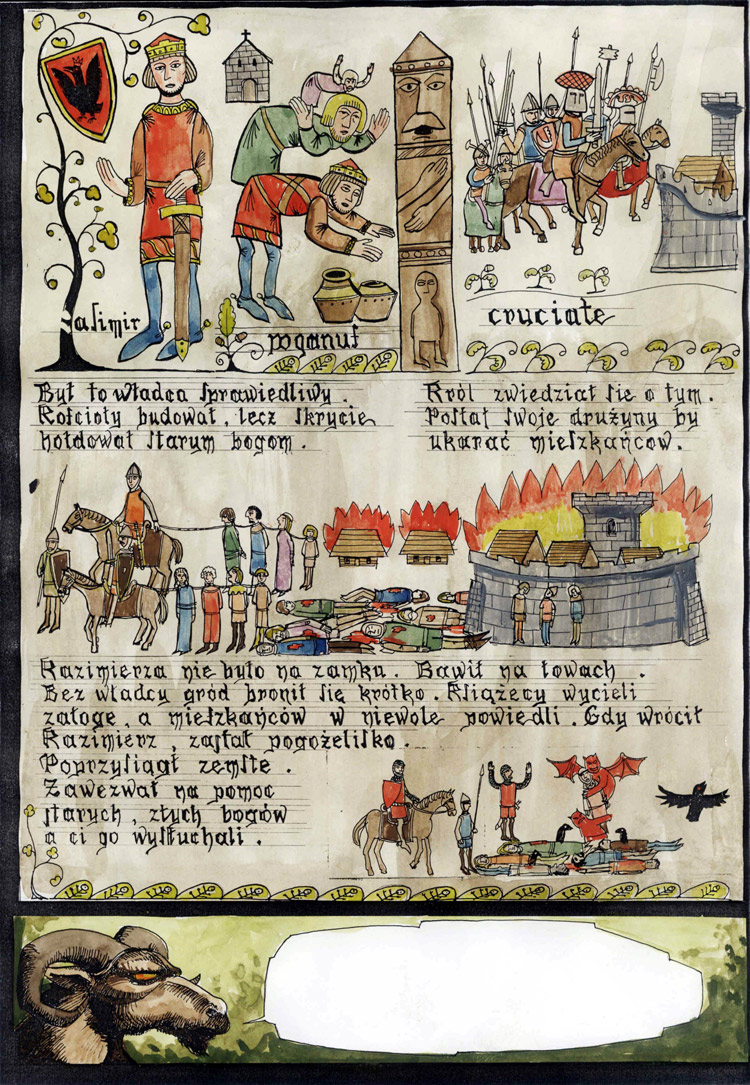 Kasimir
poganus
cruciate
Był to władca sprawiedliwy .
Kościoły budował, lecz skrycie
hołdował starym bogom .
Król zwiedział się o tym .
Posłał swoje drużyny by
ukarać mieszkańców.
Kazimierza nie było na zamku . Bawił na łowach .
Bez władcy gród bronił się krótko . Książęcy wycieli
załogę, a mieszkańców w niewole powiedli . Gdy wrócił
Kazimierz , zastał pogożelisko .
Poprzysiągł zemstę .
Zawezwał na pomoc
starych , złych bogów
a ci go wysłuchali .